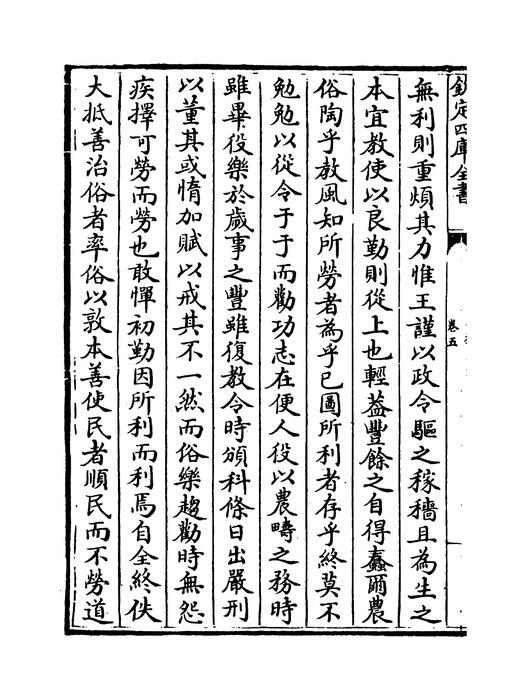 欽定四庫全書
卷五
無利則重煩其力惟王謹以政令驅之稼穡且為生之
本宜教使以良勤則從上也輕葢豐餘之自得蠢爾農
俗陶乎教風知所勞者為乎已圖所利者存乎終莫不
勉勉以從令于于而勸功志在便人役以農疇之務時
雖畢役樂於歲事之豐雖復教令時頒科條日出嚴刑
以董其或惰加賦以戒其不一然而俗樂趨勸時無怨
疾擇可勞而勞也敢憚初勤因所利而利焉自全終佚
大抵善治俗者率俗以敦本善使民者順民而不勞道